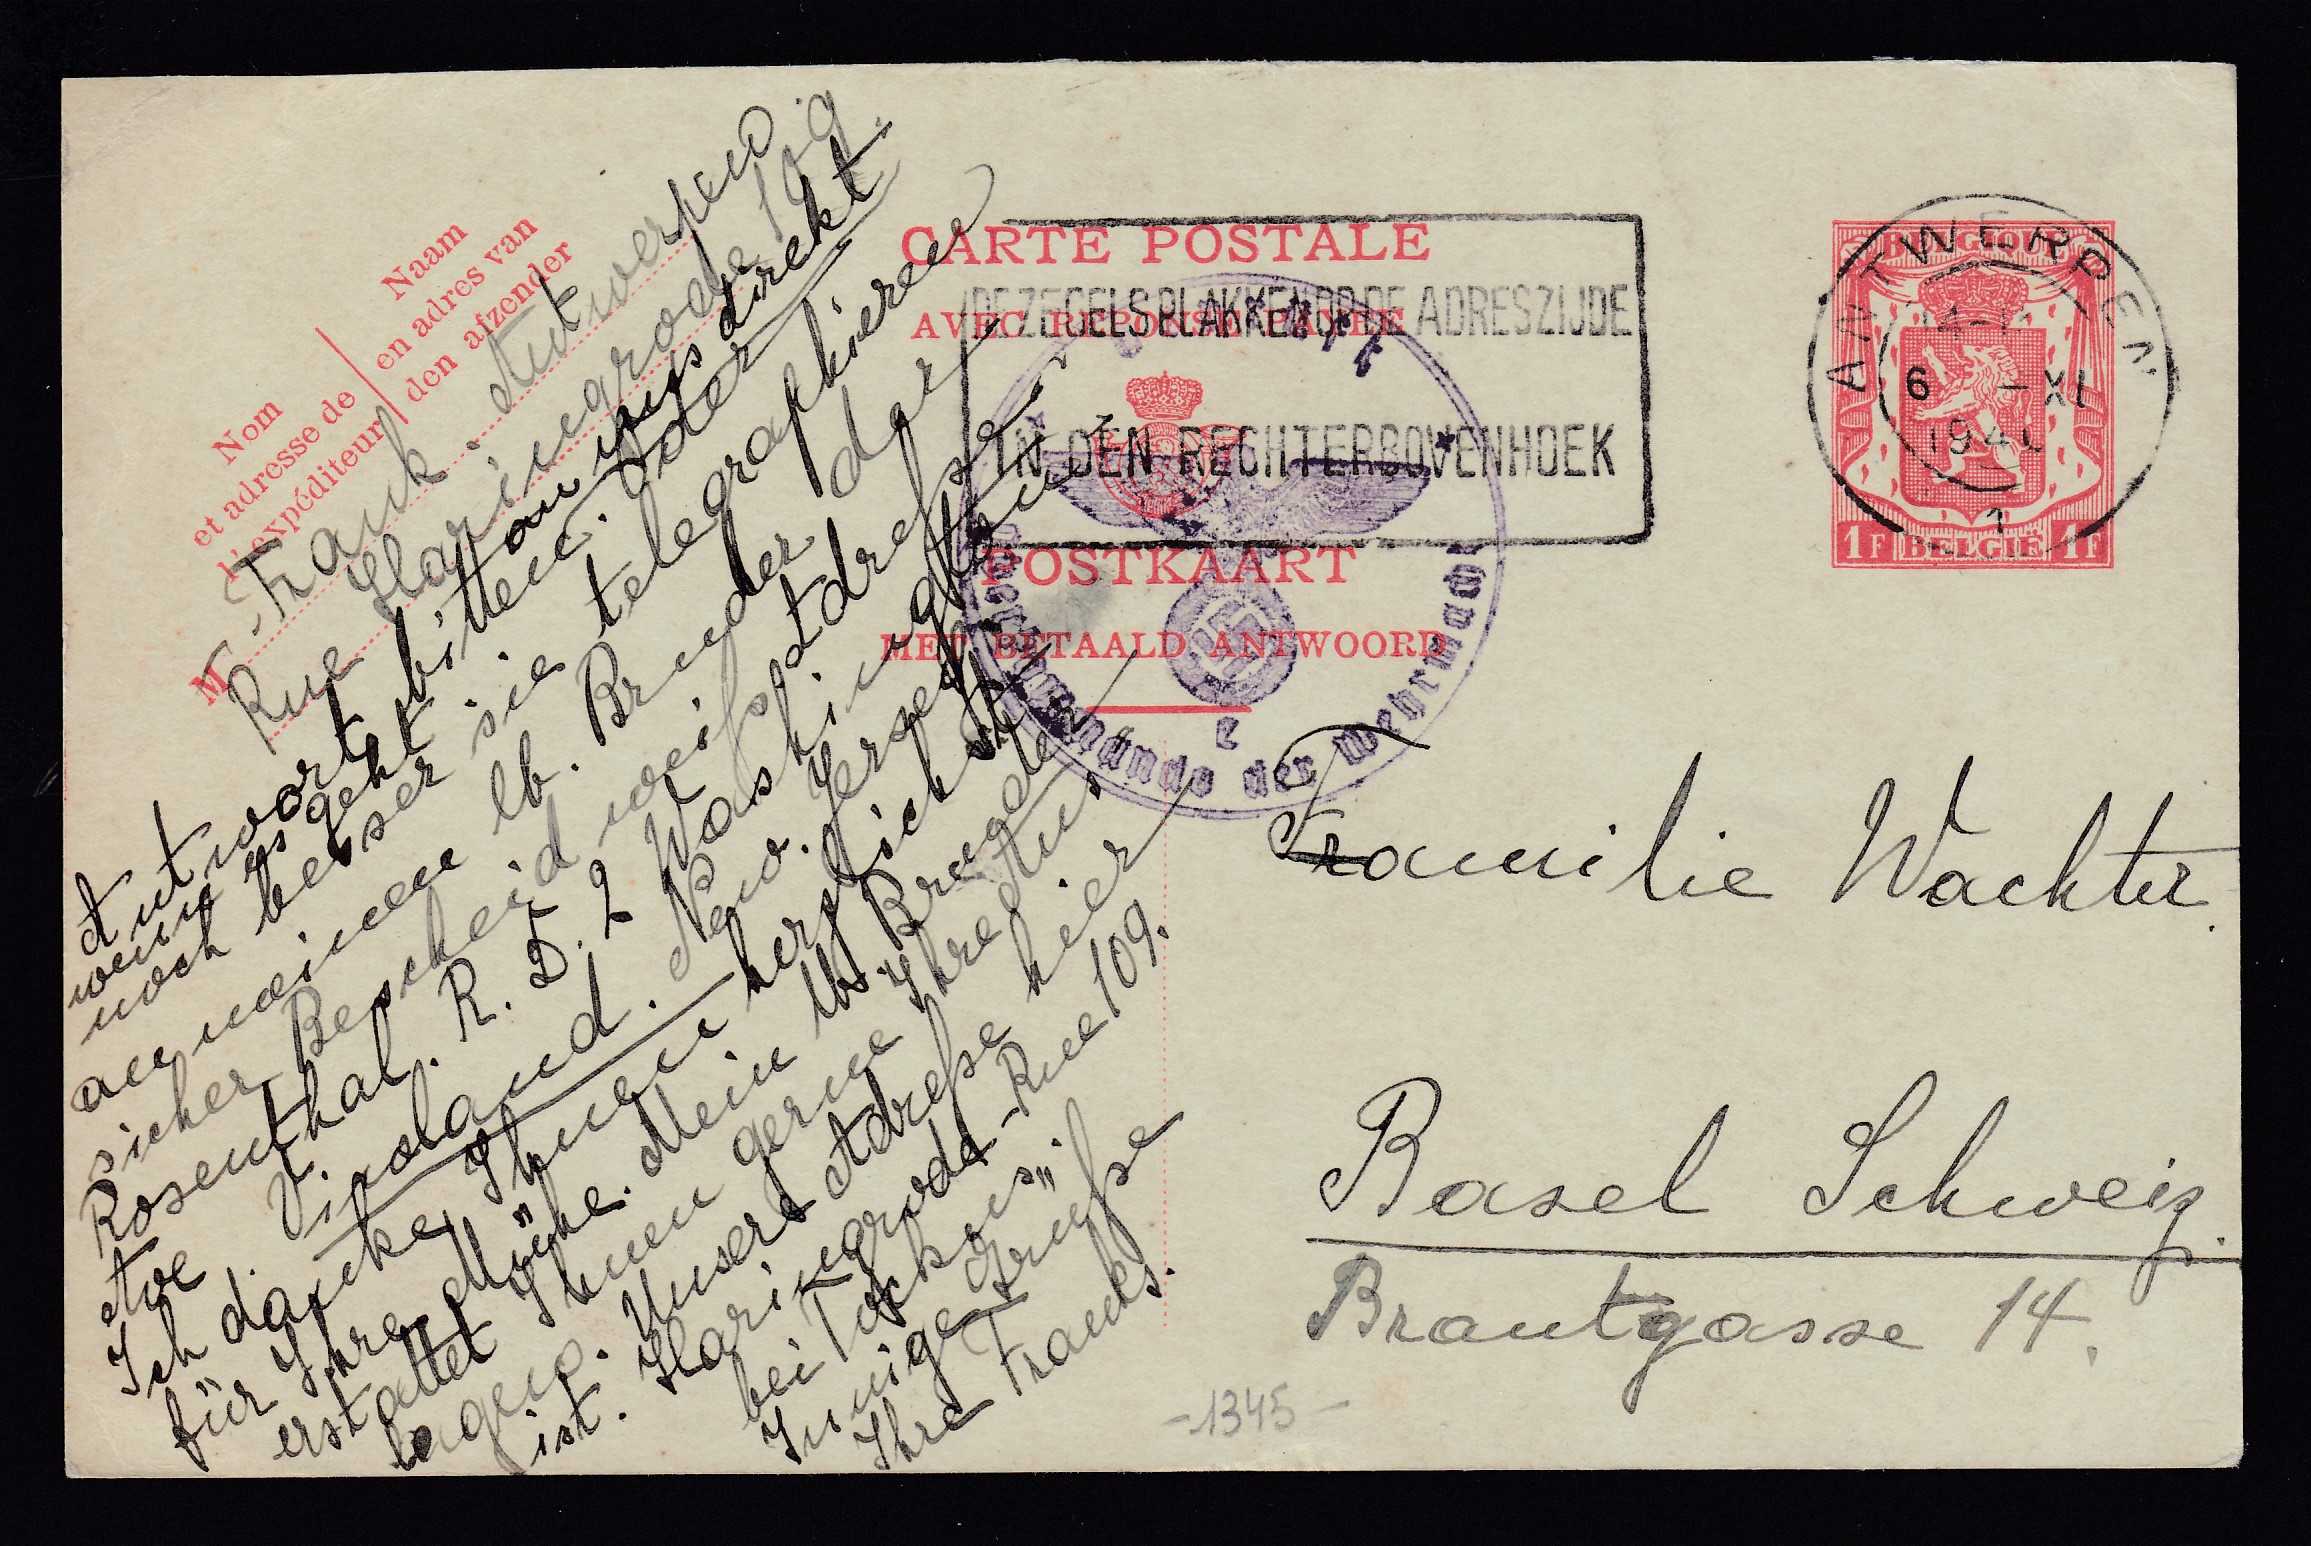 CARTE POSTALE
AVEC REPONSE PAYEE
POSTKAART
MET BETAALD ANTWOORD
DE ZEGELS PLAKKEN OP DE ADRESZIJDE
IN DEN RECHTERBOVENHOEK
BELGIQUE
1F BELGIE 1F
ANTWERPEN
6 -XI
194
1
der Wehrmacht
e
Nom
et adresse de
l'expéditeur
Naam
en adres van
den afzender
M
Frank. Antwerpen
Rue Haringrode 109.
Antwort bitten an uns direkt.
wenn es geht bitten. Oder
noch besser sie telegraphieren
an meinen lb. Bruder der
sicher Bescheid weiß
Rosenthal. R. D. 2 Washington
Ave Adresse
Vineland. New. Jersey
Ich danke Ihnen herzlichst
für Ihre Mühe. Mein lb. Bruder
erstattet Ihnen gerne Ihre
lagen. Unsere Adreße hier
ist. Haringrode-Rue 109.
bei
Innige Grüße
Ihre Franks.
Familie Wachter.
Basel Schweiz.
Brantgasse 14.
-1345-